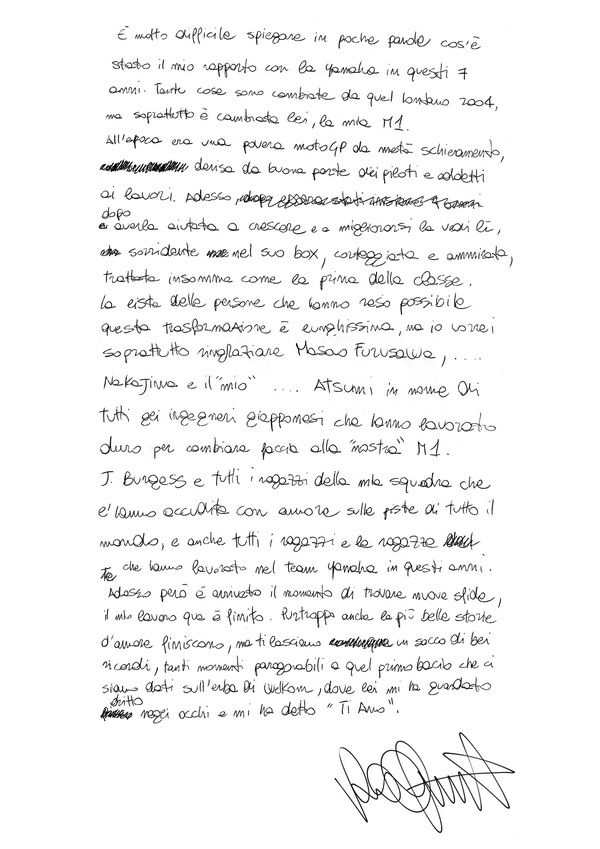 È molto difficile spiegare in poche parole cos'è
stato il mio rapporto con la yamaha in questi 7
anni. Tante cose sono cambiate da quel lontano 2004,
ma soprattutto è cambiata lei, la mia M1.
All'epoca era una povera motoGP da metà schieramento,
derisa da buona parte dei piloti e addetti
ai lavori. Adesso,
dopo
averla aiutata a crescere e a migliorarsi la vedi lì,
sorridente nel suo box, corteggiata e ammirata,
trattata insomma come la prima della classe.
La lista delle persone che hanno reso possibile
questa trasformazione è lunghissima, ma io vorrei
soprattutto ringraziare Masao Furusawa, ....
Nakajima e il "mio" .... Atsumi in nome di
tutti gli ingegneri giapponesi che hanno lavorato
duro per cambiare faccia alla "nostra" M1.
J. Burgess e tutti i ragazzi della mia squadra che
l'hanno accudita con amore sulle piste di tutto il
mondo, e anche tutti i ragazzi e le ragazze
che hanno lavorato nel team yamaha in questi anni.
Adesso però è arrivato il momento di trovare nuove sfide,
il mio lavoro qua è finito. Purtroppo anche le più belle storie
d'amore finiscono, ma ti lasciano un sacco di bei
ricordi, tanti momenti paragonabili a quel primo bacio che ci
siamo dati sull'erba di Welkom, dove lei mi ha guardato
dritto
negli occhi e mi ha detto "Ti Amo".